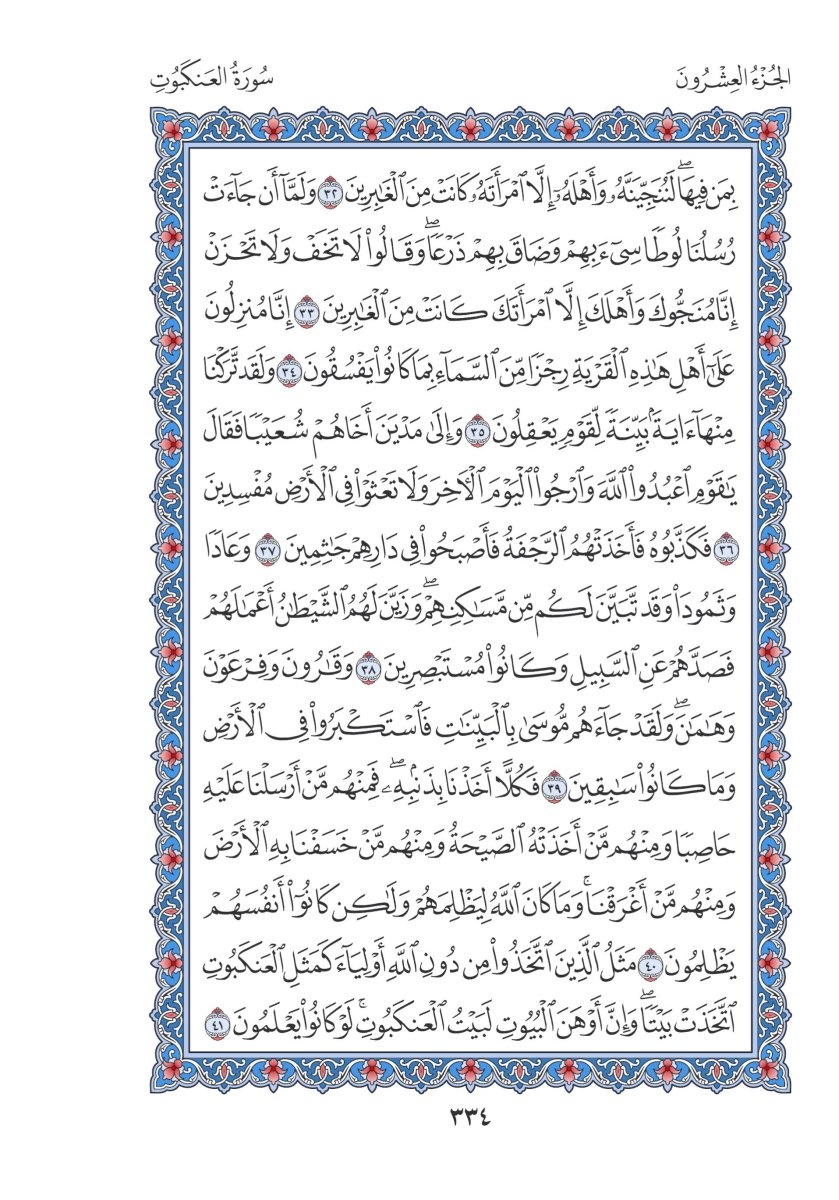 الجُزْءُ العِشْرُونَ
سُورَةُ العَنكَبُوتِ
بِمَن فِيهَاۖ لَنُنَجِّيَنَّهُۥ وَأَهْلَهُۥٓ إِلَّا ٱمْرَأَتَهُۥ كَانَتْ مِنَ ٱلْغَٰبِرِينَ ٣٢ وَلَمَّآ أَن جَآءَتْ
رُسُلُنَا لُوطًا سِيٓءَ بِهِمْ وَضَاقَ بِهِمْ ذَرْعًاۖ وَقَالُوا۟ لَا تَخَفْ وَلَا تَحْزَنْ
إِنَّا مُنَجُّوكَ وَأَهْلَكَ إِلَّا ٱمْرَأَتَكَ كَانَتْ مِنَ ٱلْغَٰبِرِينَ ٣٣ إِنَّا مُنزِلُونَ
عَلَىٰٓ أَهْلِ هَٰذِهِ ٱلْقَرْيَةِ رِجْزًا مِّنَ ٱلسَّمَآءِ بِمَا كَانُوا۟ يَفْسُقُونَ ٣٤ وَلَقَد تَّرَكْنَا
مِنْهَآ ءَايَةًۢ بَيِّنَةً لِّقَوْمٍ يَعْقِلُونَ ٣٥ وَإِلَىٰ مَدْيَنَ أَخَاهُمْ شُعَيْبًا فَقَالَ
يَٰقَوْمِ ٱعْبُدُوا۟ ٱللَّهَ وَٱرْجُوا۟ ٱلْيَوْمَ ٱلْءَاخِرَ وَلَا تَعْثَوْا۟ فِى ٱلْأَرْضِ مُفْسِدِينَ
٣٦ فَكَذَّبُوهُ فَأَخَذَتْهُمُ ٱلرَّجْفَةُ فَأَصْبَحُوا۟ فِى دَارِهِمْ جَٰثِمِينَ ٣٧ وَعَادًا
وَثَمُودَا۟ وَقَد تَّبَيَّنَ لَكُم مِّن مَّسَٰكِنِهِمْۖ وَزَيَّنَ لَهُمُ ٱلشَّيْطَٰنُ أَعْمَٰلَهُمْ
فَصَدَّهُمْ عَنِ ٱلسَّبِيلِ وَكَانُوا۟ مُسْتَبْصِرِينَ ٣٨ وَقَٰرُونَ وَفِرْعَوْنَ
وَهَٰمَٰنَۖ وَلَقَدْ جَآءَهُم مُّوسَىٰ بِٱلْبَيِّنَٰتِ فَٱسْتَكْبَرُوا۟ فِى ٱلْأَرْضِ
وَمَا كَانُوا۟ سَٰبِقِينَ ٣٩ فَكُلًّا أَخَذْنَا بِذَنۢبِهِۦۖ فَمِنْهُم مَّنْ أَرْسَلْنَا عَلَيْهِ
حَاصِبًا وَمِنْهُم مَّنْ أَخَذَتْهُ ٱلصَّيْحَةُ وَمِنْهُم مَّنْ خَسَفْنَا بِهِ ٱلْأَرْضَ
وَمِنْهُم مَّنْ أَغْرَقْنَاۚ وَمَا كَانَ ٱللَّهُ لِيَظْلِمَهُمْ وَلَٰكِن كَانُوٓا۟ أَنفُسَهُمْ
يَظْلِمُونَ ٤٠ مَثَلُ ٱلَّذِينَ ٱتَّخَذُوا۟ مِن دُونِ ٱللَّهِ أَوْلِيَآءَ كَمَثَلِ ٱلْعَنكَبُوتِ
ٱتَّخَذَتْ بَيْتًاۖ وَإِنَّ أَوْهَنَ ٱلْبُيُوتِ لَبَيْتُ ٱلْعَنكَبُوتِۚ لَوْ كَانُوا۟ يَعْلَمُونَ ٤١
٣٣٤